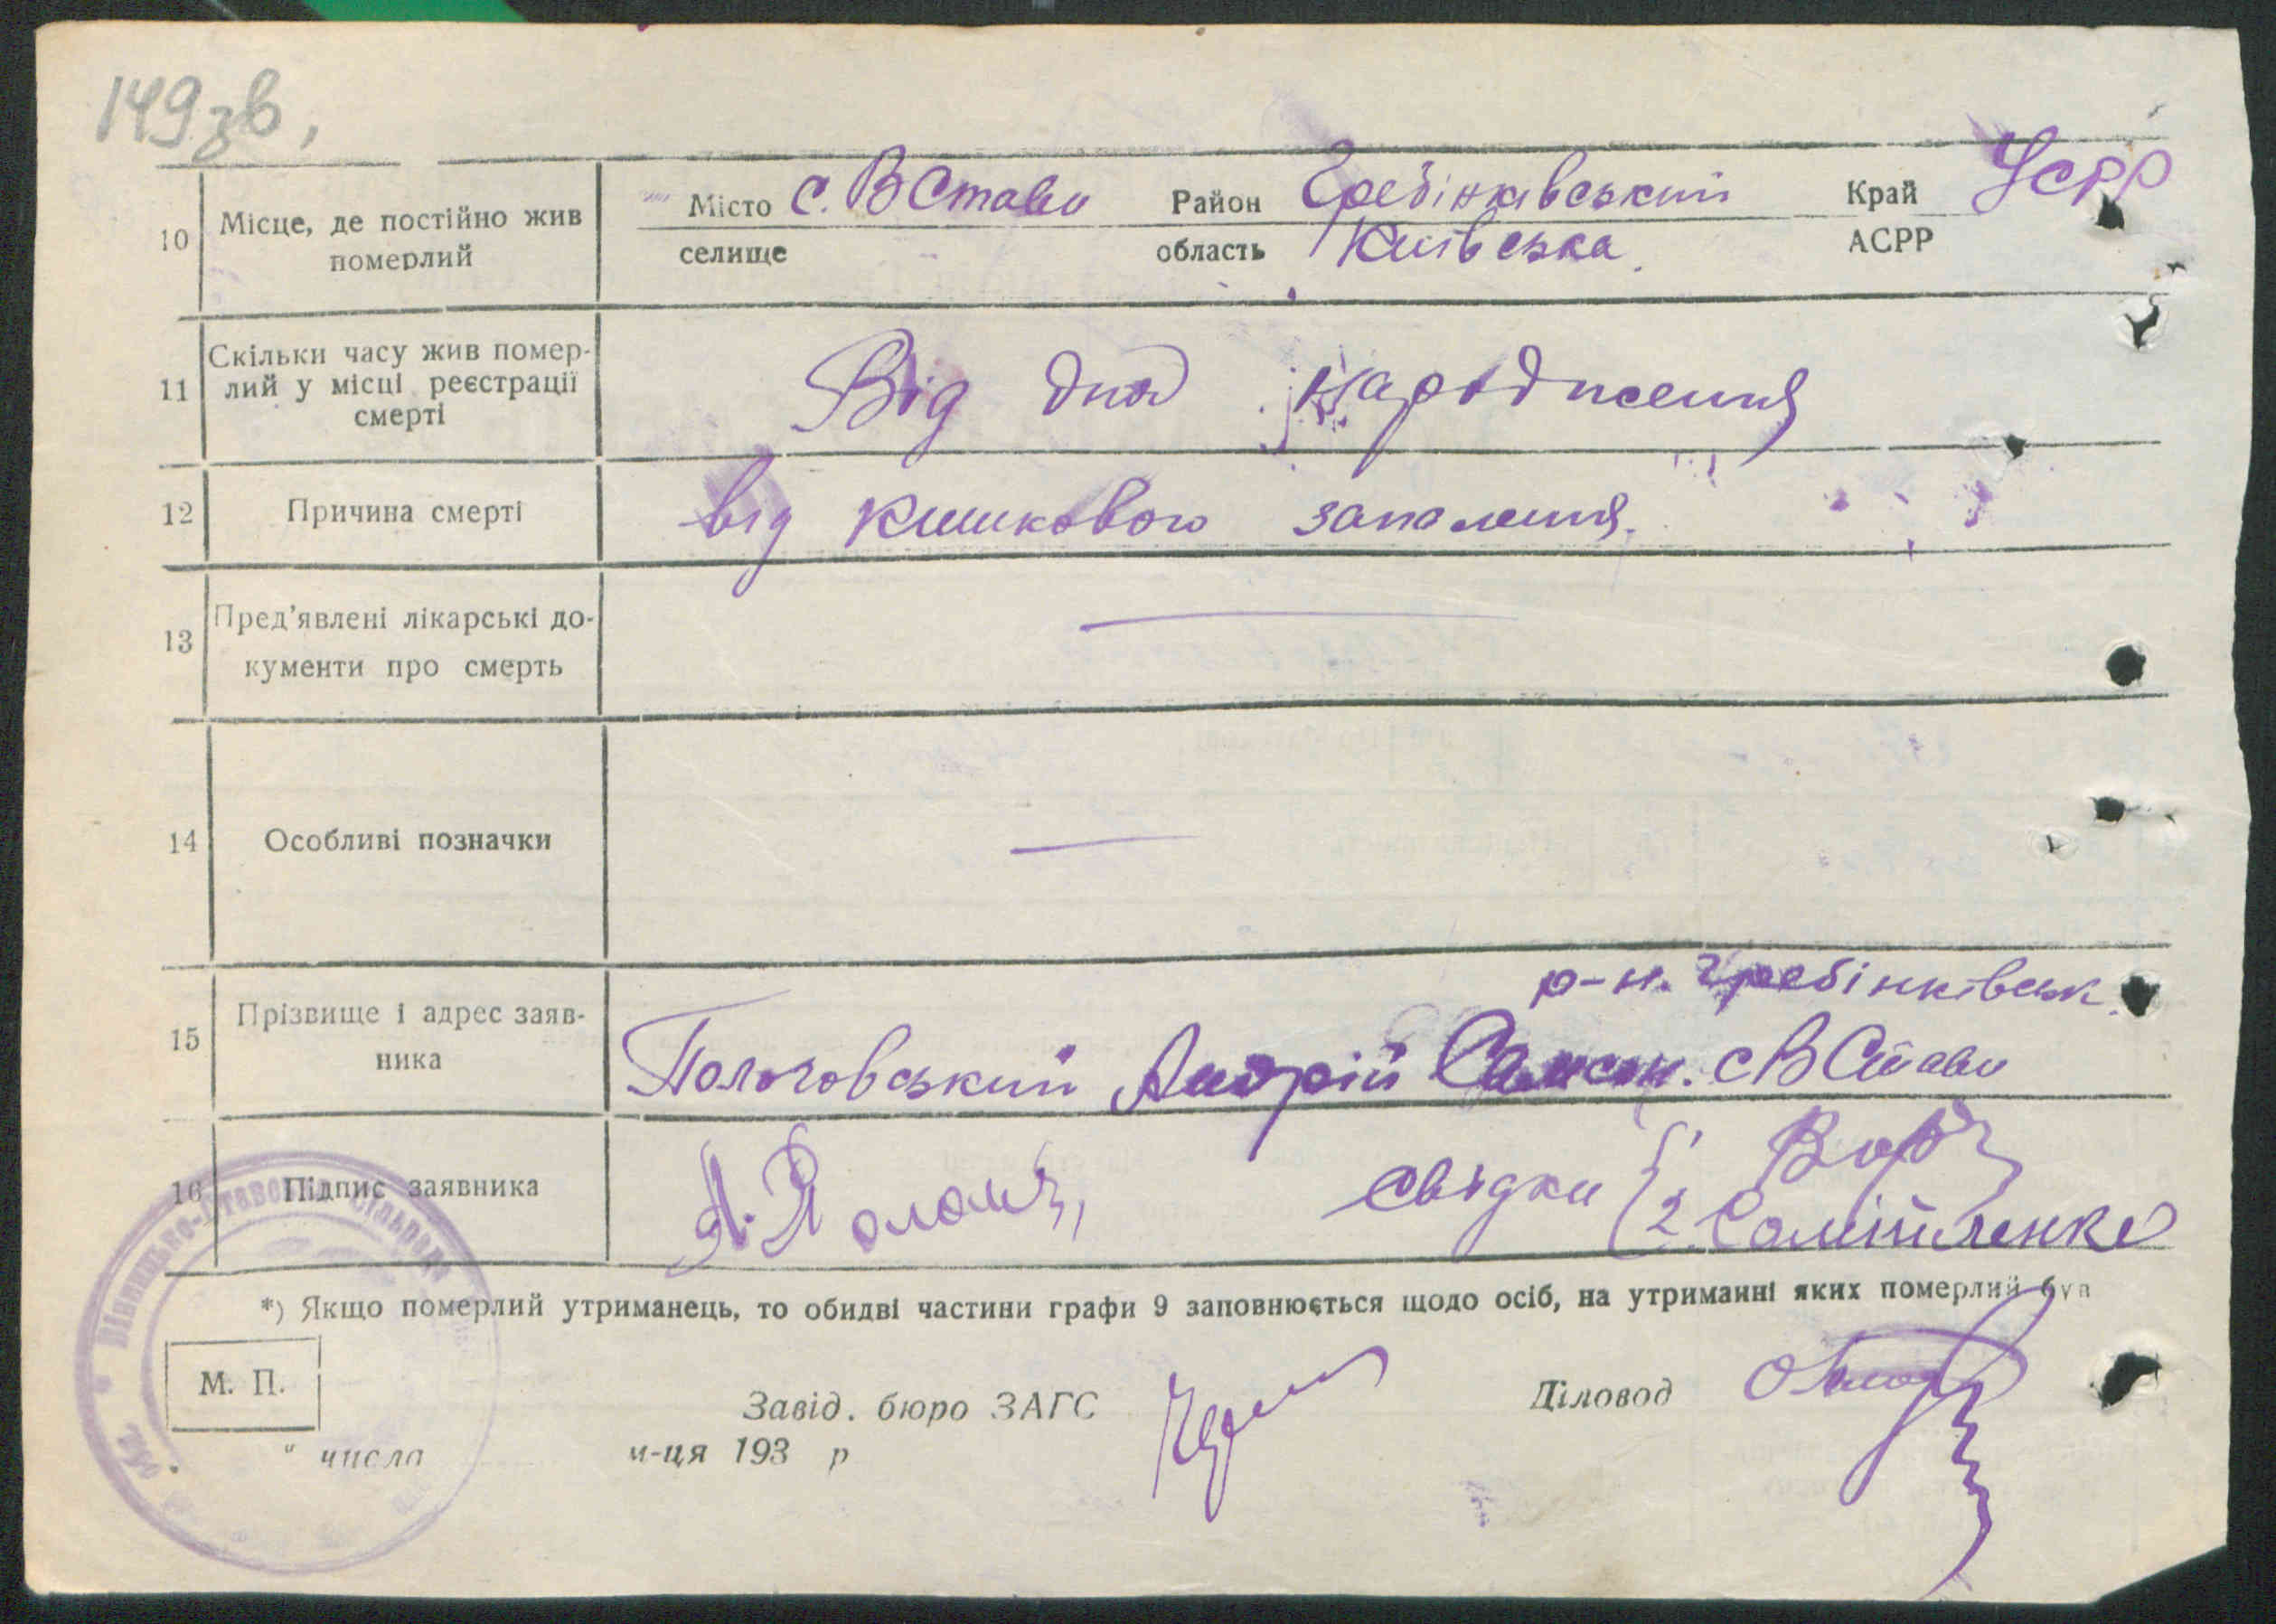 149зв,
10 Місце, де постійно жив померлий
Місто с. ВСтави Район Гребінківський Край УСРР
селище область Київська АСРР
11 Скільки часу жив помер-
лий у місці реєстрації
смерті
Від дня народження
12 Причина смерті від кишкового запалення.
13 Пред'явлені лікарські до-
кументи про смерть
—
14 Особливі позначки —
р-н. Гребінківськ.
15 Прізвище і адрес заяв-
ника
Пологовський Андрій Самсон. с В Стави
16 Підпис заявника
свідки 1
2.
*) Якщо померлий утриманець, то обидві частини графи 9 заповнюється щодо осіб, на утриманні яких померлий був
М. П.
Завід. бюро ЗАГС
Діловод
" числа м-ця 193 р
Вінницько-Ставська Сільрада